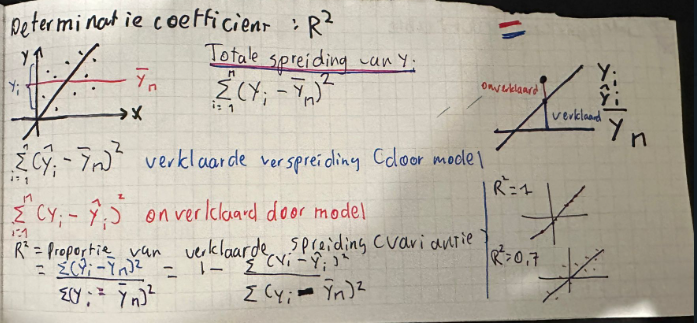 Determinatie coefficient : R²
Y
Yi
Ȳn
X
Totale spreiding van y.
Σ(Yi - Ȳn)²
n
i=1
onverklaard
verklaard
Yi
Ŷi
Ȳn
n
Σ(Ŷi - Ȳn)² verklaarde verspreiding (door model
i=1
n
Σ(Yi - Ŷi)² onverklaard door model
i=1
R² = Proportie van verklaarde spreiding (variantie)
= Σ(Ŷi - Ȳn)² / Σ(Yi - Ȳn)² = 1 - Σ(Yi - Ŷi)² / Σ(Yi - Ȳn)²
R²=1
R²=0,7